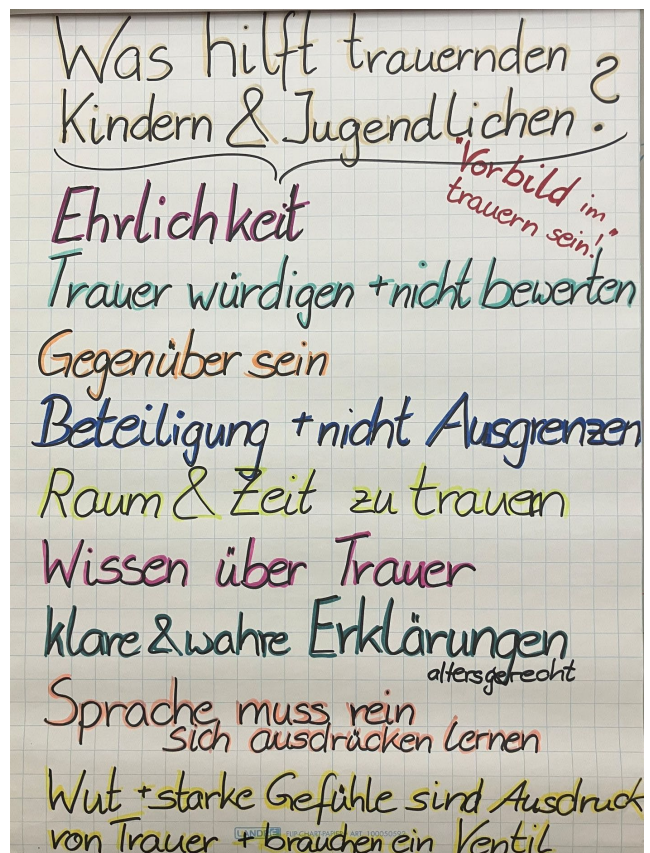 Was hilft trauernden
Kindern & Jugendlichen?
"Vorbild im
trauern sein!"
Ehrlichkeit
Trauer würdigen + nicht bewerten
Gegenüber sein
Beteiligung + nicht Ausgrenzen
Raum & Zeit zu trauern
Wissen über Trauer
klare & wahre Erklärungen
altersgerecht
Sprache muss rein
sich ausdrücken lernen
Wut + starke Gefühle sind Ausdruck
von Trauer + brauchen ein Ventil